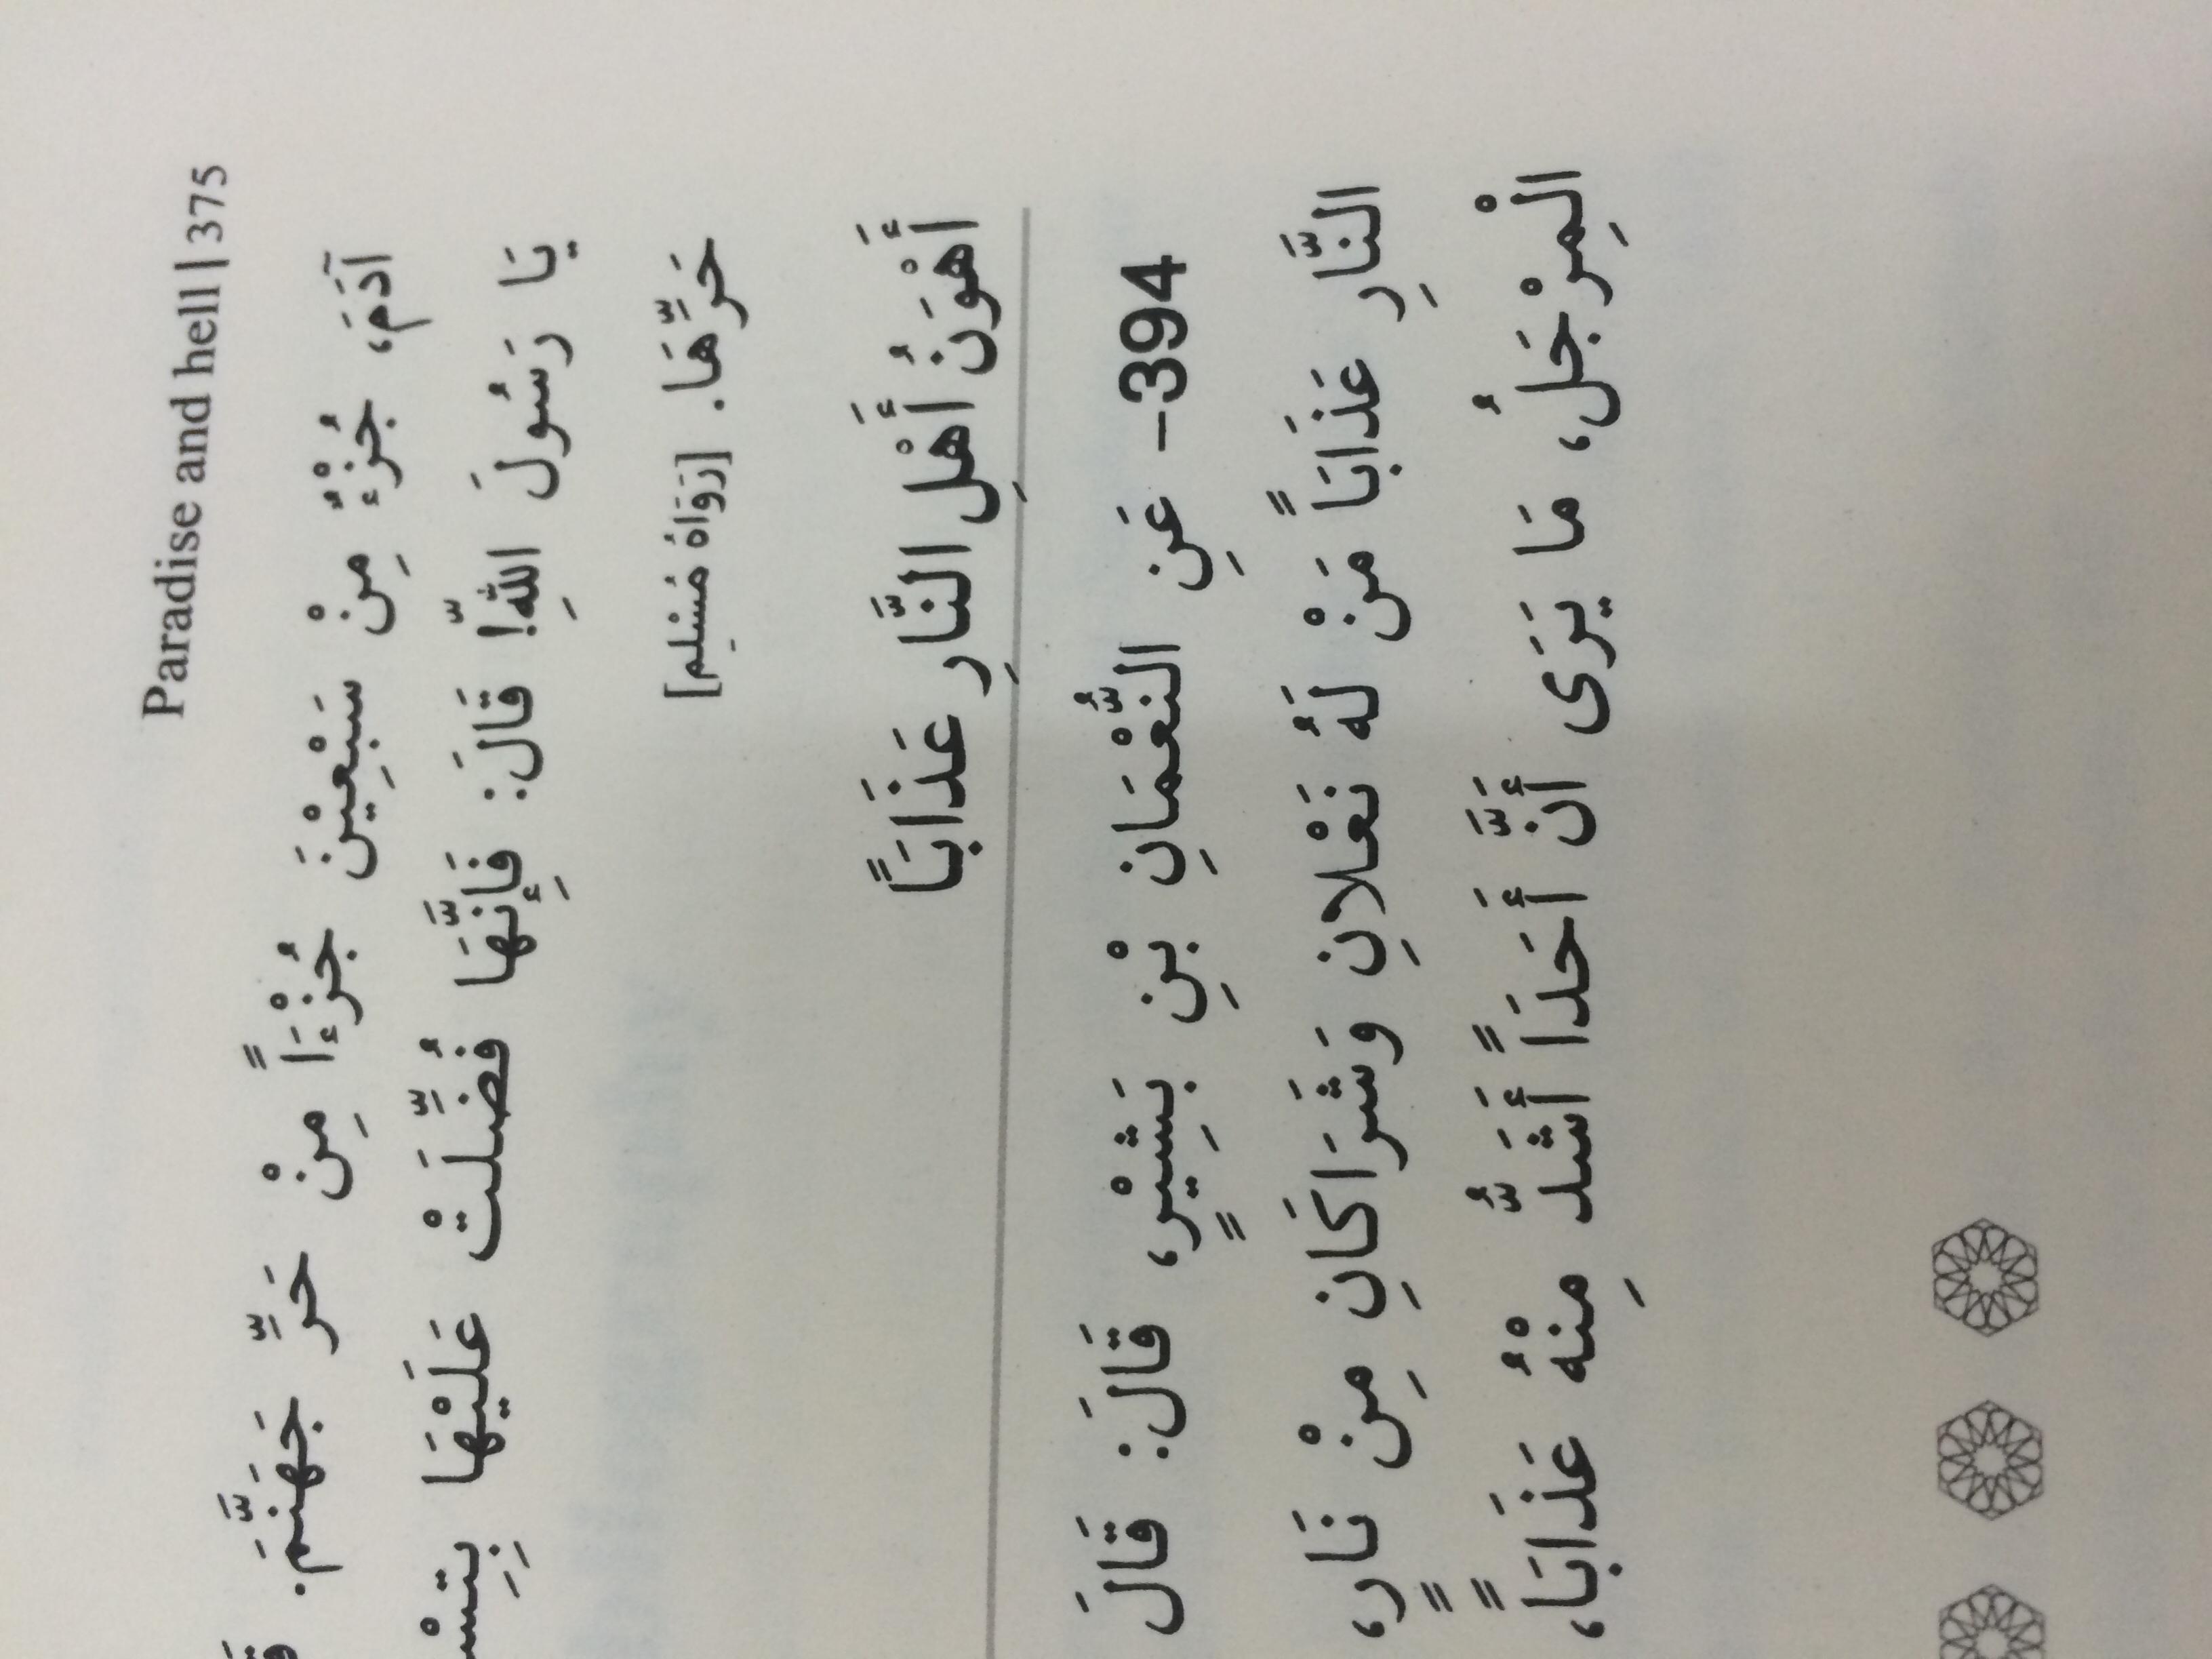 Paradise and hell | 375
آدَمَ، جُزْءٌ مِنْ سَبْعِيْنَ جُزْءَاً مِنْ حَرِّ جَهَنَّمَ.
يَا رَسُولَ اللهِ! قَالَ: فَإِنَّهَا فُضِّلَتْ عَلَيْهَا
حَرِّهَا. [رَوَاهُ مُسْلِم]
أَهْوَنُ أَهْلِ النَّارِ عَذَابَاً
394– عَنِ النُّعْمَانِ بْنِ بَشِيْرٍ، قَالَ: قَالَ
النَّارِ عَذَابَاً مَنْ لَهُ نَعْلانِ وَشَرَاكَانِ مِنْ نَارٍ،
الْمِرْجَلُ، مَا يَرَى أَنَّ أَحَدَاً أَشَدُّ مِنْهُ عَذَابَاً،